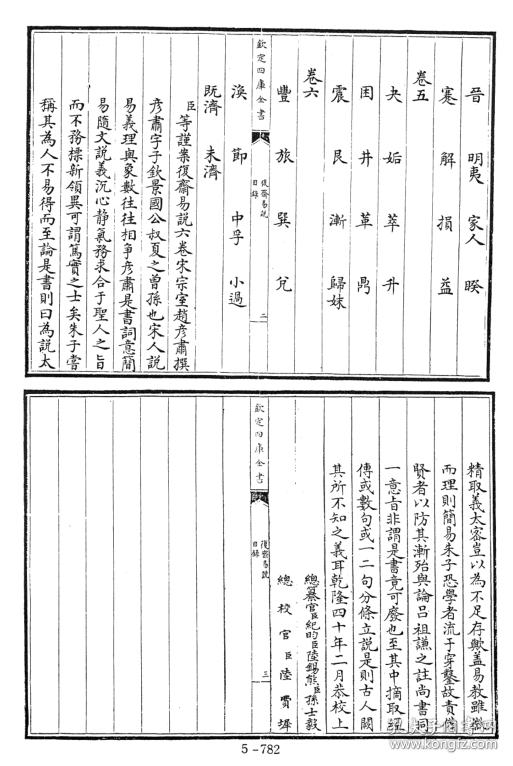 晉 明夷 家人 睽
蹇 解 損 益
卷五
夬 姤 萃 升
困 井 革 鼎
震 艮 漸 歸妹
卷六
豐 旅 巽 兌
欽定四庫全書
復齋易說
目錄
二
渙 節 中孚 小過
旣濟 未濟
臣等謹案復齋易說六卷宋宗室趙彥肅撰
彥肅字子欽景國公叔夏之曾孫也宋人說
易義理與象數往往相爭彥肅是書詞意簡
易隨文說義沉心靜氣務求合于聖人之旨
而不務標新領異可謂篤實之士矣朱子嘗
稱其為人不易得而至論是書則曰為說太
精取義太密豈以為不足存歟蓋易教雖微
而理則簡易朱子恐學者流于穿鑿故責偹
賢者以防其漸殆與論呂祖謙之註尚書同
一意旨非謂是書竟可廢也至其中摘取經
傳或數句或一二句分條立說是則古人闕
其所不知之義耳乾隆四十年二月恭校上
總纂官臣紀昀臣陸錫熊臣孫士毅
總校官臣陸費墀
欽定四庫全書
復齋易說
目錄
三
5-782
www.kongfz.com